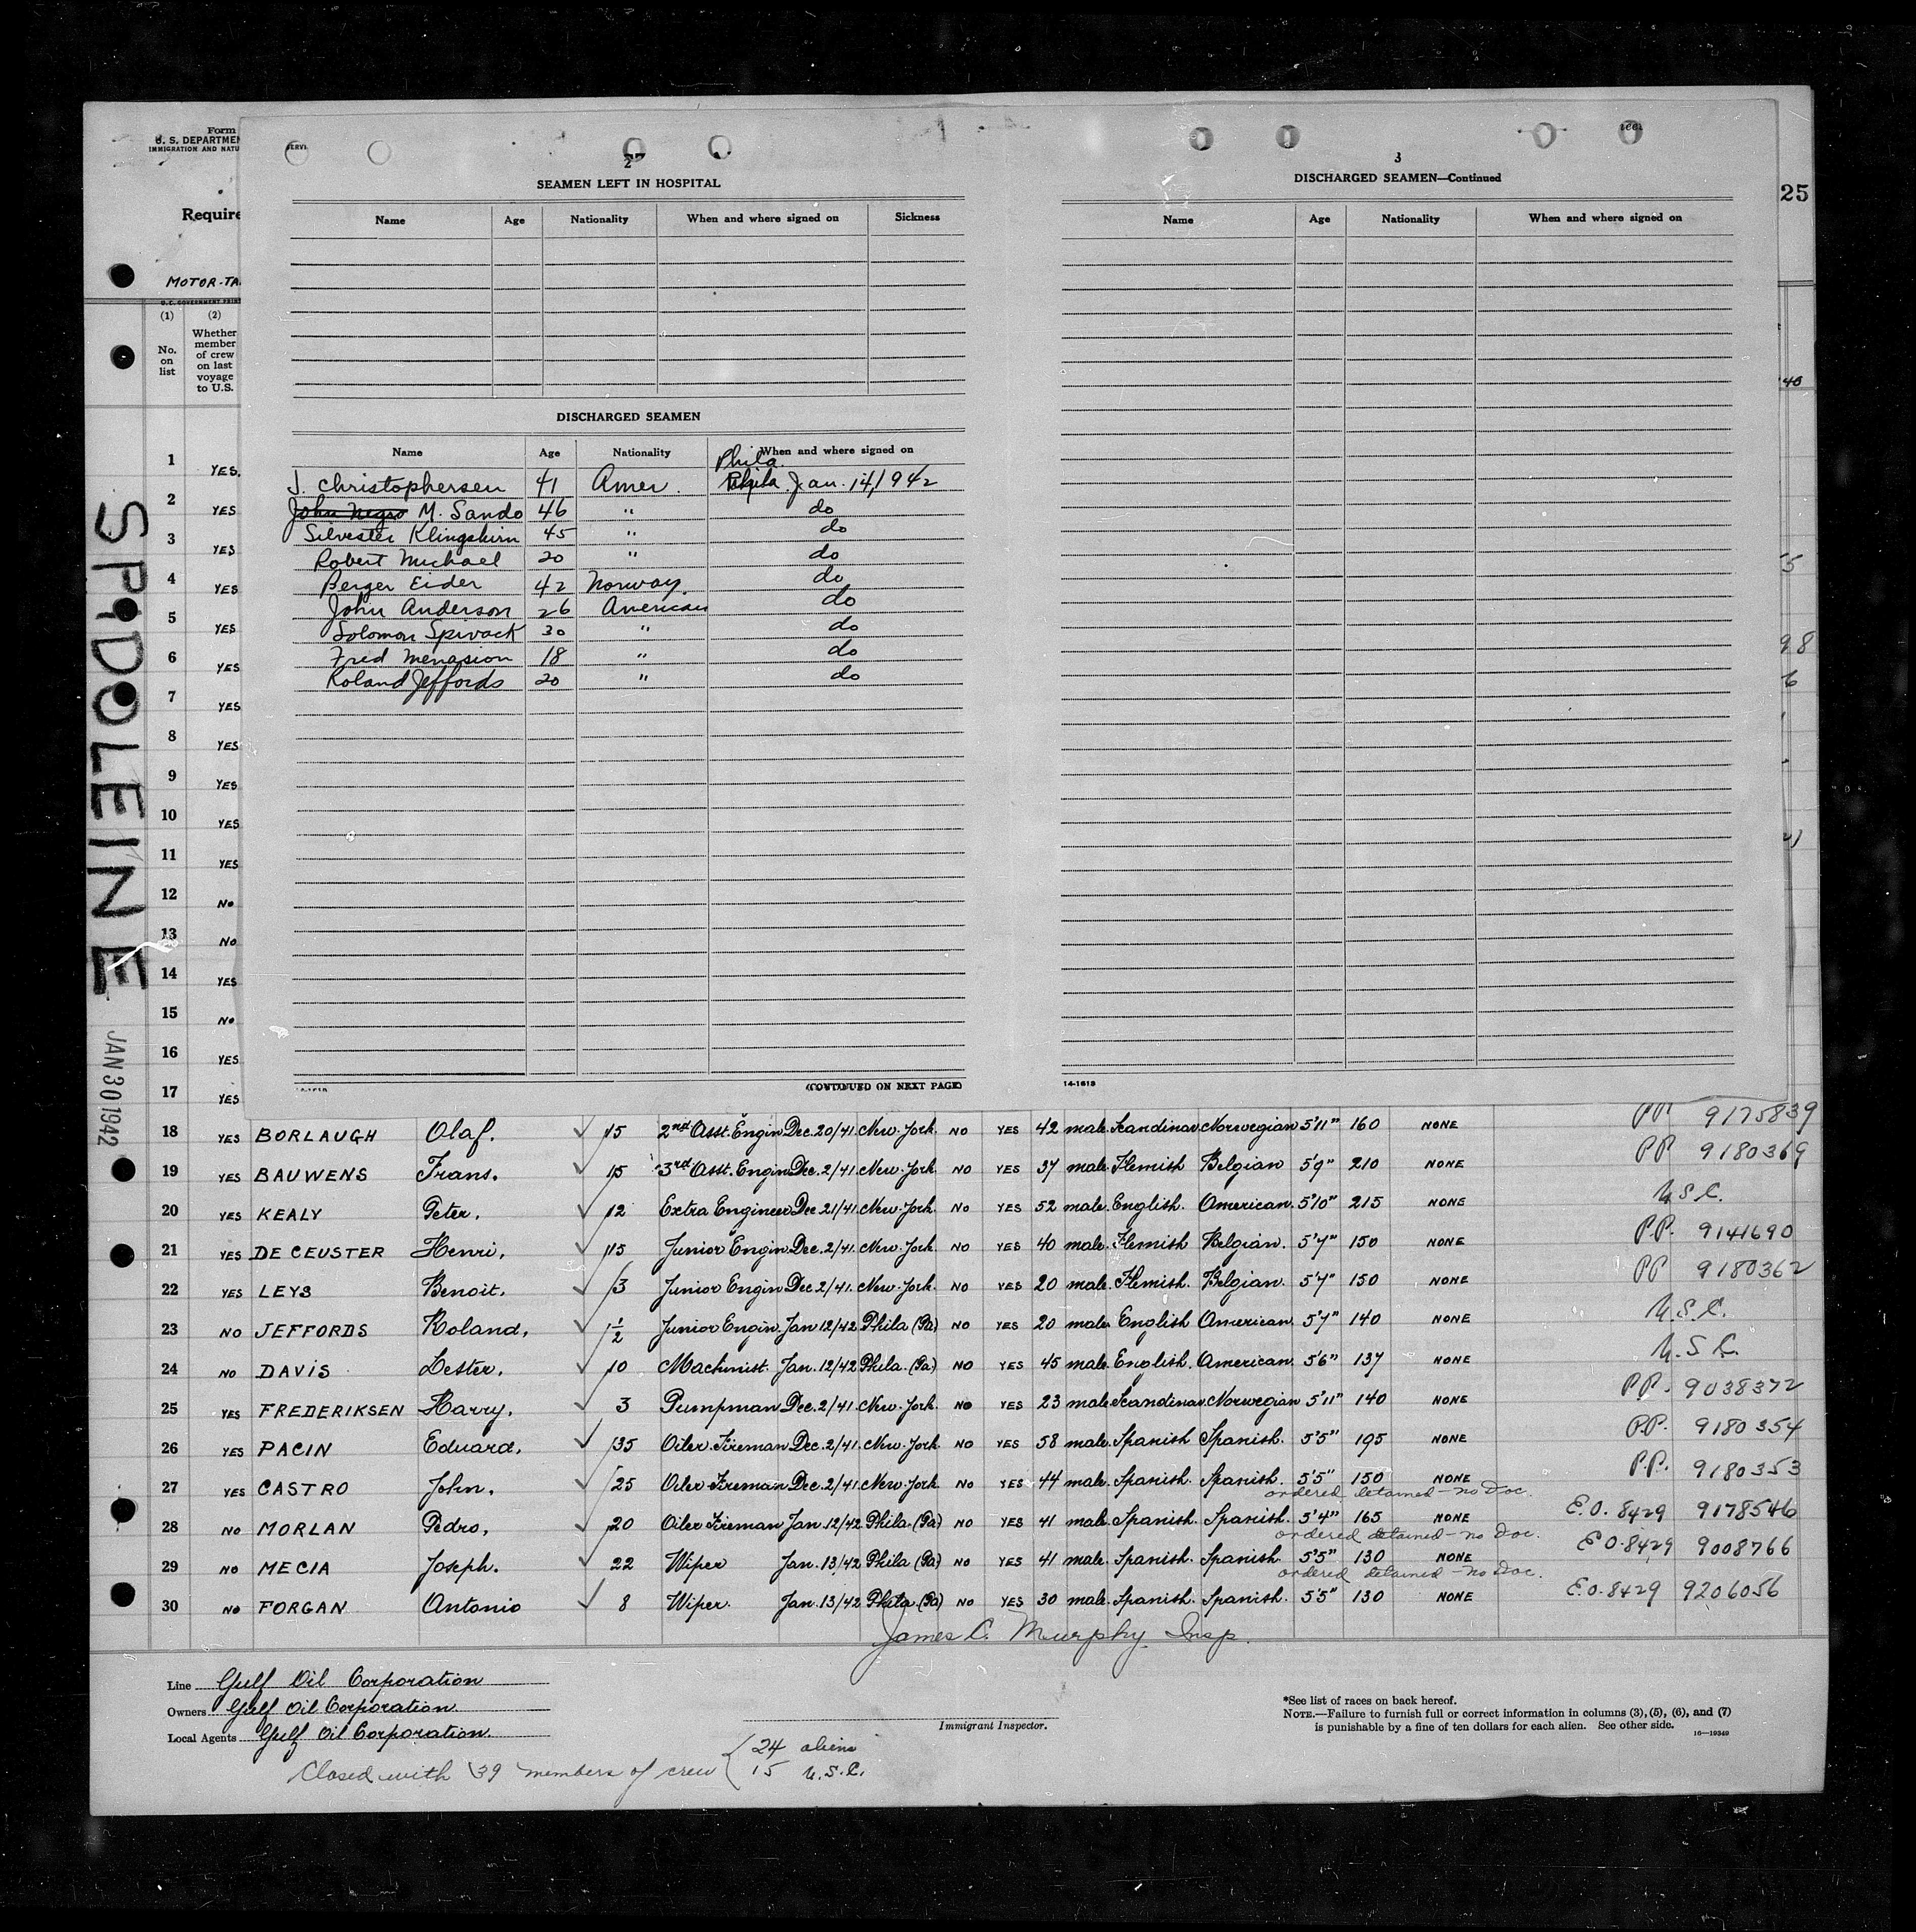 Form
U. S. DEPARTMEN
IMMIGRATION AND NATU
SERVI
Require
MOTOR-TA
25
2
SEAMEN LEFT IN HOSPITAL
Name Age Nationality When and where signed on Sickness
DISCHARGED SEAMEN
Name Age Nationality When and where signed on
Phila.
J. Christophersen 41 Amer. Phila Jan. 14/1942
John Negro M. Sando 46 " do
Silvester Klingshirn 45 " do
Robert Michael 20 " do
Berger Eider 42 Norway. do
John Anderson 26 American do
Solomon Spivack 30 " do
Fred Menasion 18 " do
Roland Jeffords 20 " do
(CONTINUED ON NEXT PAGE)
3
DISCHARGED SEAMEN—Continued
Name Age Nationality When and where signed on
14-1613
(1) (2)
No. on list
Whether member of crew on last voyage to U.S.
1 YES.
2 YES
3 YES
4 YES
5 YES
6 YES
7 YES
8 YES
9 YES
10 YES
11 YES
12 NO
13 NO
14 YES
15 NO
16 YES
17 YES
18 YES BORLAUGH Olaf. 15 2nd Asst. Engin Dec. 20/41. New-York. NO YES 42 male. Scandinav. Norwegian 5'11" 160 NONE PP 9175839
19 YES BAUWENS Frans. 15 3rd Asst. Engin Dec. 2/41. New-York. NO YES 37 male. Flemish Belgian 5'9" 210 NONE PP 9180369
20 YES KEALY Peter. 12 Extra Engineer Dec. 21/41. New-York. NO YES 52 male. English. American. 5'10" 215 NONE U.S.C.
21 YES DE CEUSTER Henri. 15 Junior Engin Dec. 2/41. New-York. NO YES 40 male. Flemish Belgian. 5'7" 150 NONE P.P. 9141690
22 YES LEYS Benoit. 3 Junior Engin Dec. 2/41. New-York. NO YES 20 male. Flemish. Belgian. 5'7" 150 NONE PP 9180362
23 NO JEFFORDS Roland. 1/2 Junior Engin. Jan 12/42 Phila (Pa) NO YES 20 male. English American. 5'7" 140 NONE U.S.C.
24 NO DAVIS Lester. 10 Machinist. Jan. 12/42 Phila. (Pa) NO YES 45 male. English. American. 5'6" 137 NONE U.S.C.
25 YES FREDERIKSEN Harry. 3 Pumpman Dec. 2/41. New-York. NO YES 23 male. Scandinav. Norwegian 5'11" 140 NONE P.P. 9038372
26 YES PACIN Eduard. 35 Oiler. Fireman Dec. 2/41. New-York. NO YES 58 male. Spanish Spanish. 5'5" 195 NONE P.P. 9180354
27 YES CASTRO John. 25 Oiler Fireman Dec. 2/41. New-York. NO YES 44 male. Spanish. Spanish. 5'5" 150 NONE P.P. 9180353
ordered detained - no Doc.
28 NO MORLAN Pedro. 20 Oiler Fireman Jan. 12/42 Phila. (Pa) NO YES 41 male. Spanish. Spanish. 5'4" 165 NONE E.O. 8429 9178546
ordered detained - no Doc.
29 NO MECIA Joseph. 22 Wiper Jan. 13/42 Phila (Pa) NO YES 41 male. Spanish. Spanish. 5'5" 130 NONE E.O. 8429 9008766
ordered detained - no Doc.
30 NO FORGAN Antonio 8 Wiper. Jan. 13/42 Phila (Pa) NO YES 30 male. Spanish. Spanish. 5'5" 130 NONE E.O. 8429 9206056
James C. Murphy Insp.
Line Gulf Oil Corporation
Owners Gulf Oil Corporation
Local Agents Gulf Oil Corporation.
Immigrant Inspector.
Closed with 39 members of crew { 24 aliens
15 U.S.C.
*See list of races on back hereof.
NOTE.—Failure to furnish full or correct information in columns (3), (5), (6), and (7)
is punishable by a fine of ten dollars for each alien. See other side.
16—19349
SPIDOLEINE
JAN 30 1942